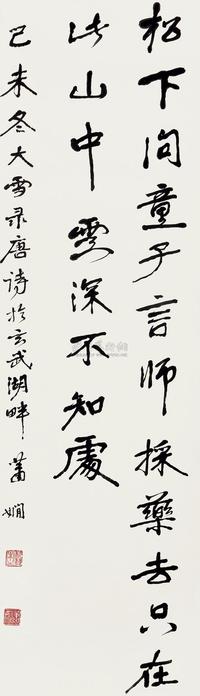 松下问童子言師採藥去只在
此山中雲深不知處
己未冬大雪录唐诗於玄武湖畔蕭嫻